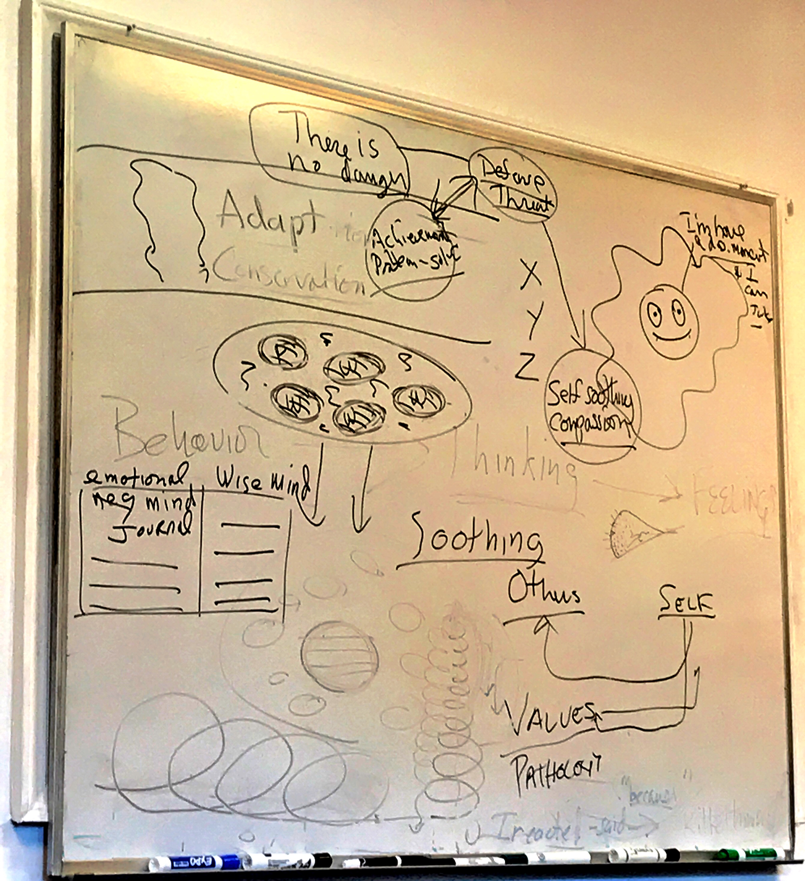 There is
no danger
Defense
Threat
Adapt
Achievement
Conservation
I'm have
& I
can
X
Y
Z
Self soothing
Compassion
Behavior
Thinking
FEELINGS
emotional
neg mind
Journal
Wise mind
Soothing
Others
SELF
VALUES
PATHOLOGY
"because"
I reacted - said
EXPO